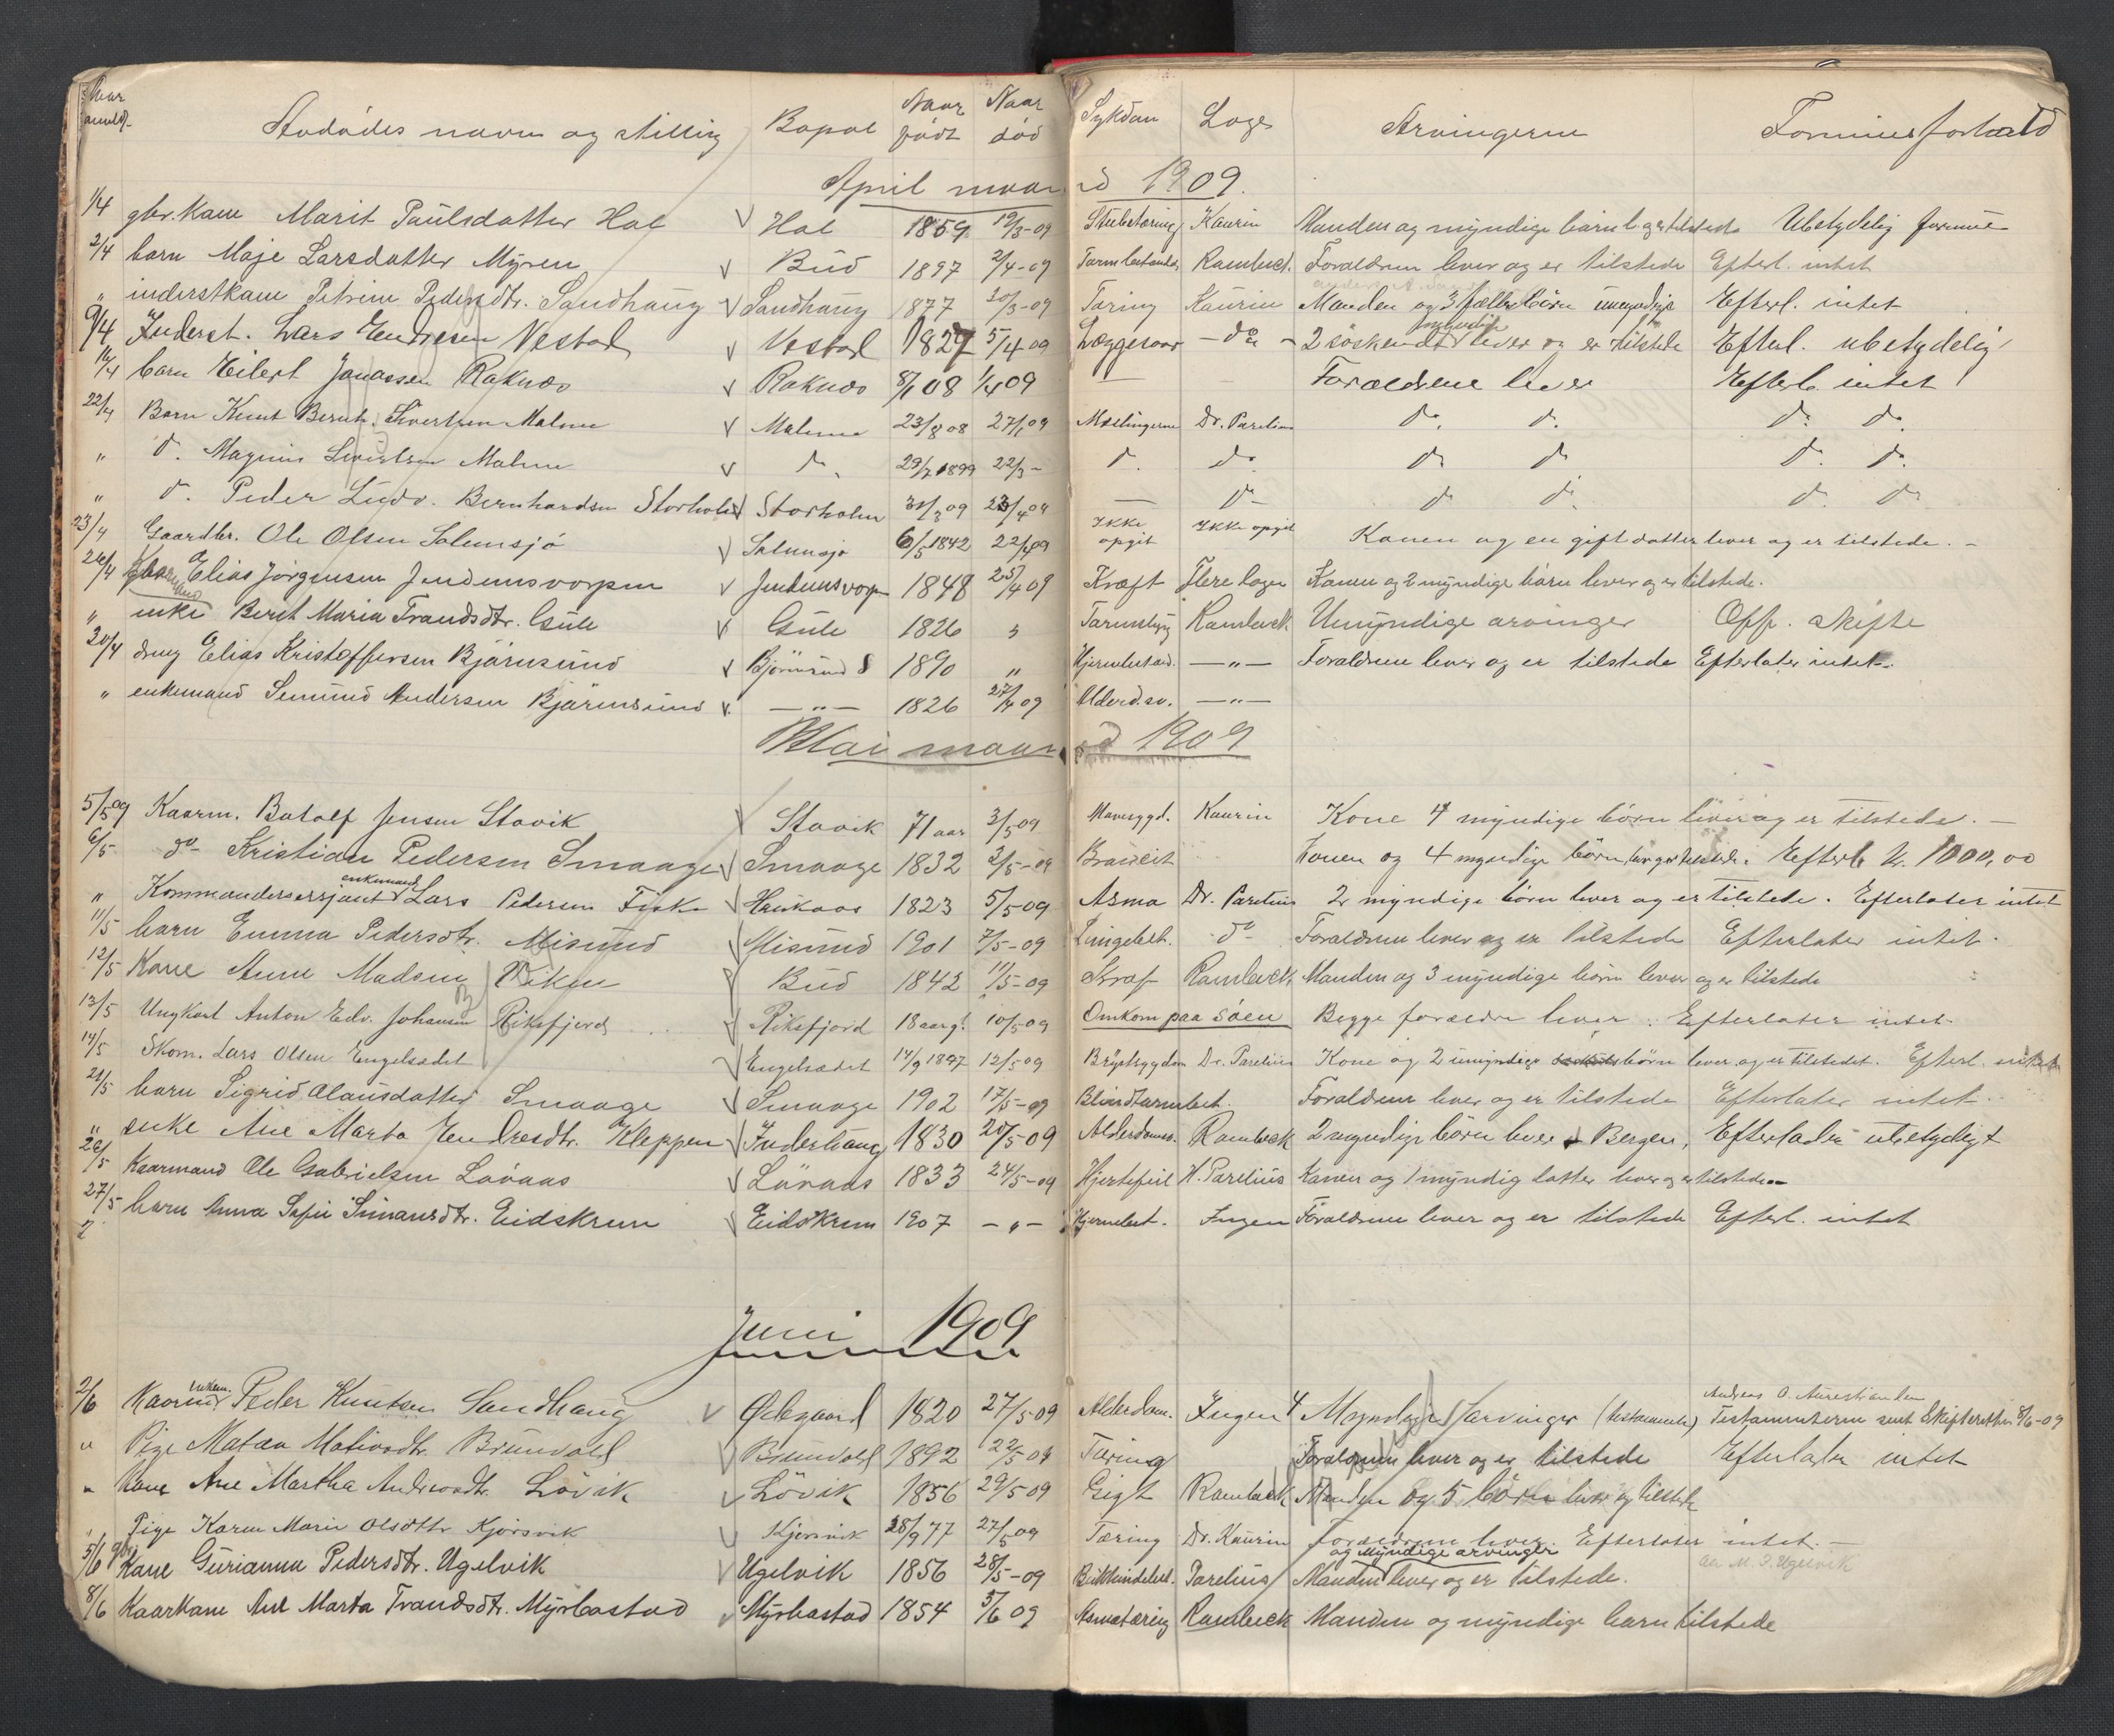 Naar anmeldt. Avdødes navn og stilling Bopæl Naar født Naar død Sykdom Læge Arvingerne Formuesforhold
April maaned 1909.
1/4 gbr. kane Marit Paulsdatter Hol V Hol 1859 19/3-09 Strubetæring Kaurin Manden og myndige børn l. og er tilstede Ubetydelig formue
2/4 barn Maje Larsdatter Myren V Bud 1897 2/4-09 Rambeck. Forældrene lever og er tilstede Efterl. intet
" inderstkane Petrine Pedersdtr. Sandhaug V Sandhaug 1877 20/3-09 Tæring Kaurin Manden og 3 fælles børn umyndige Efterl. intet
9/4 Inderst. Lars Endresen Vestad V Vestad 1827 5/4 09 Læggesaar - do - 2 søskende myndige lever og er tilstede Efterl. ubetydelig
16/4 barn Eilert Jonassen Raknes V Raknes 8/1 08 1/4 09 — Forældrene lever Efterl. intet
22/4 Barn Knut Bernh. Sivertsen Malme V Malme 23/8 08 27/1 09 Mæslingerne Dr. Parelius do. do. do. do.
" do. Magnus Sivertsen Malme V do. 29/7 1899 22/3 - do. do do do do. do.
" do. Peder Ludv. Bernhardsen Storholm V Storholm 31/3 09 23/4 09 — do - do do. do do
23/4 Gaardbr. Ole Olsen Solemsjø V Solemsjø 6/5 1842 22/4 09 Ikke opgit Ikke opgit Konen og en gift datter lever og er tilstede. -
26/4 Elias Jørgensen Jendemsvorpen V Jendemsvorp 1848 25/4 09 Kræft Flere læger Konen og 2 myndige børn lever og er tilstede.
" enke Berit Maria Trondsdtr. Gule V Gule 1826 " Rambeck Umyndige arvinger Off. skifte
30/4 dreng Elias Kristoffersen Bjørnsund V Bjørnsund S 1890 " Hjernebetænd. —"— Forældrene lever og er tilstede Efterlater intet.
" enkemand Semund Andersen Bjørnsund V. —"— 1826 27/4 09 Alderd.sv. —"—
Mai maaned 1909
5/5 09 Kaarm. Botolf Jensen Stavik V Stavik 71 aar 3/5 09 Mavesygd. Kaurin Kone 4 myndige børn lever og er tilstede. —
6/5 do- Kristian Pedersen Smaage V Smaage 1832 2/5-09 Konen og 4 myndige børn lever og er tilstede. Efterl. kr. 1000,00
" Kommandersersjant enkemand Lars Pedersen V 1823 5/5 09 Asma Dr. Parelius 2 myndige børn lever og er tilstede. Efterlater intet
11/5 barn Emma Pedersdtr. Misund V Misund 1901 7/5-09 Lungebet. do- Forældrene lever og er tilstede Efterlater intet.
12/5 Kone Anne Madsen Viken V Bud 1842 11/5-09 Rambeck Manden og 3 myndige børn lever og er tilstede
13/5 Ungkarl Anton Edv. Johansen Riksfjord V Riksfjord 18 aar gl. 10/5 09 Omkom paa søen Begge forældre lever. Efterlater intet
14/5 Skom. Lars Olsen Engelsædet V Engelsædet 14/9 1897 12/5 09 Brystsygdom Dr. Parelius Kone og 2 umyndige børn lever og er tilstedet. Efterl. intet
21/5 barn Sigrid Olausdatter Smaage V Smaage 1902 17/5-09 Blindtarmbet. Forældrene lever og er tilstede Efterlater intet.
" enke Ane Marta Endresdtr. Kleppen V Inderhaug 1830 20/5-09 Alderdomssv. Rambeck 2 myndige børn lever i Bergen, Efterlader ubetydeligt
26/5 Kaarmand Ole Gabrielsen Løvaas V Løvaas 1833 24/5-09 Hjertefeil H. Parelius Konen og 1 myndig datter lever og er tilstede
27/5 barn Anna Sofie Simonsdtr. Eidskrem V Eidskrem 1907 -"- Hjernebet. Ingen Forældrene lever og er tilstede Efterl. intet
Juni 1909
2/6 Kaarm. enkem. Peder Knutsen Sandhaug V Ødegaard 1820 27/5-09 Alderdom. Ingen 4 Myndige arvinger (testamente) Testamenterne sent Skifteretten 8/6-09
" Pige Matea Mathiasdtr. Brunvold V Brunvold 1892 22/5 09 Tæring Forældrene lever og er tilstede Efterlater intet
" Kone Ane Martha Andreasdtr. Løvik V Løvik 1856 29/5 09 Gigt Rambeck Manden og 5 børn lever og tilstede
" Pige Karen Marie Olsdtr Kjørsvik V Kjørsvik 28/9 77 27/5 09 Tæring Dr. Kaurin Forældrene lever. Efterlater intet. —
5/6 gbr. Kone Gurianna Pedersdtr. Ugelvik V Ugelvik 1856 28/5-09 Parelius Manden og Myndige arvinger lever og er tilstede. M. P. Ugelvik
8/6 Kaarkone Ane Marta Trondsdtr. Myrbostad V Myrbostad 1854 5/6 09 Asmatæring Rambeck Manden og myndige børn tilstede